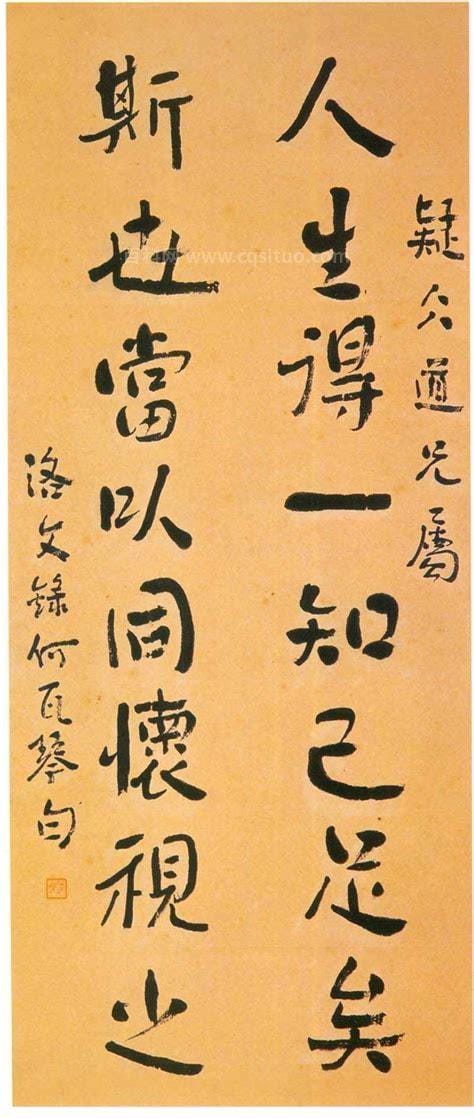 疑仌道兄屬
人生得一知己足矣
斯世當以同懷視之
洛文錄何瓦琴句
百科网 www.cqsituo.com